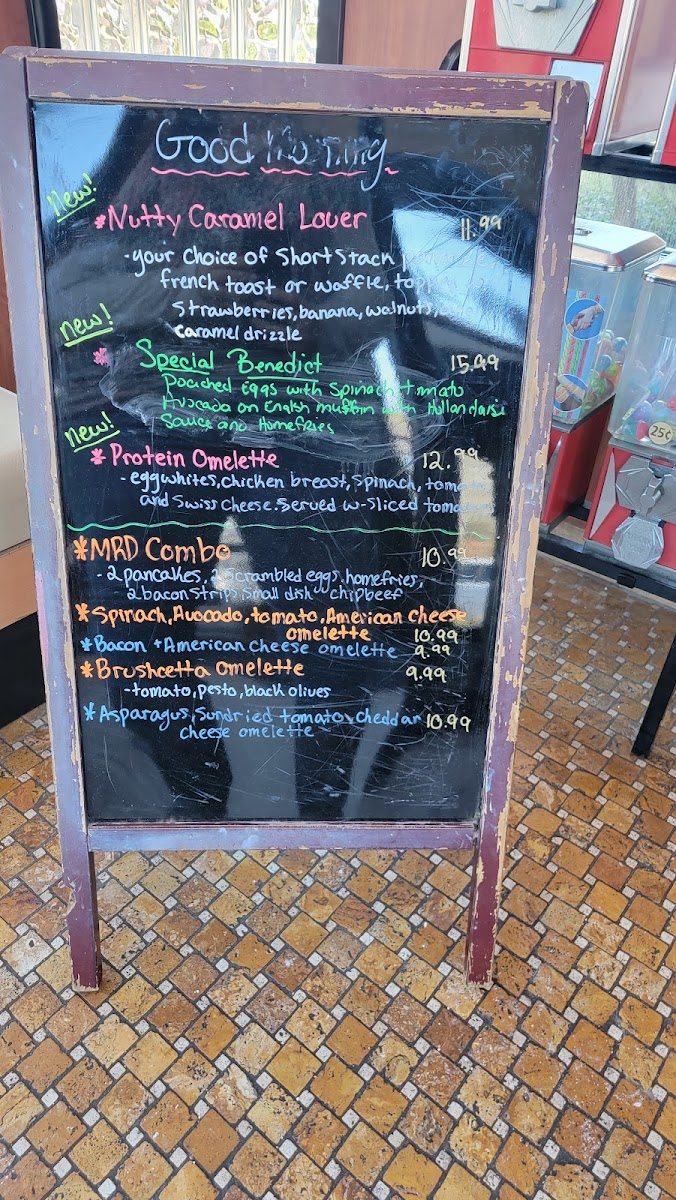 Good Morning
new!
*Nutty Caramel Lover 11.99
-your choice of Short Stack
french toast or waffle,
Strawberries, banana, walnuts,
caramel drizzle
new!
* Special Benedict 15.99
Poached Eggs with Spinach tomato
Avocado on English muffin with Hollandaise
Sauce and Homefries
new!
*Protein Omelette 12.99
-egg whites, chicken breast, spinach,
and Swiss cheese. Served w-sliced
*MRD Combo 10.99
-2 pancakes, 2 scrambled eggs, homefries,
2 bacon strips, small dish chipbeef
*Spinach, Avocado, tomato, American cheese
omelette 10.99
*Bacon + American cheese omelette 9.99
*Brushcetta omelette 9.99
-tomato, pesto, black olives
*Asparagus, Sundried tomato, cheddar 10.99
cheese omelette
25¢